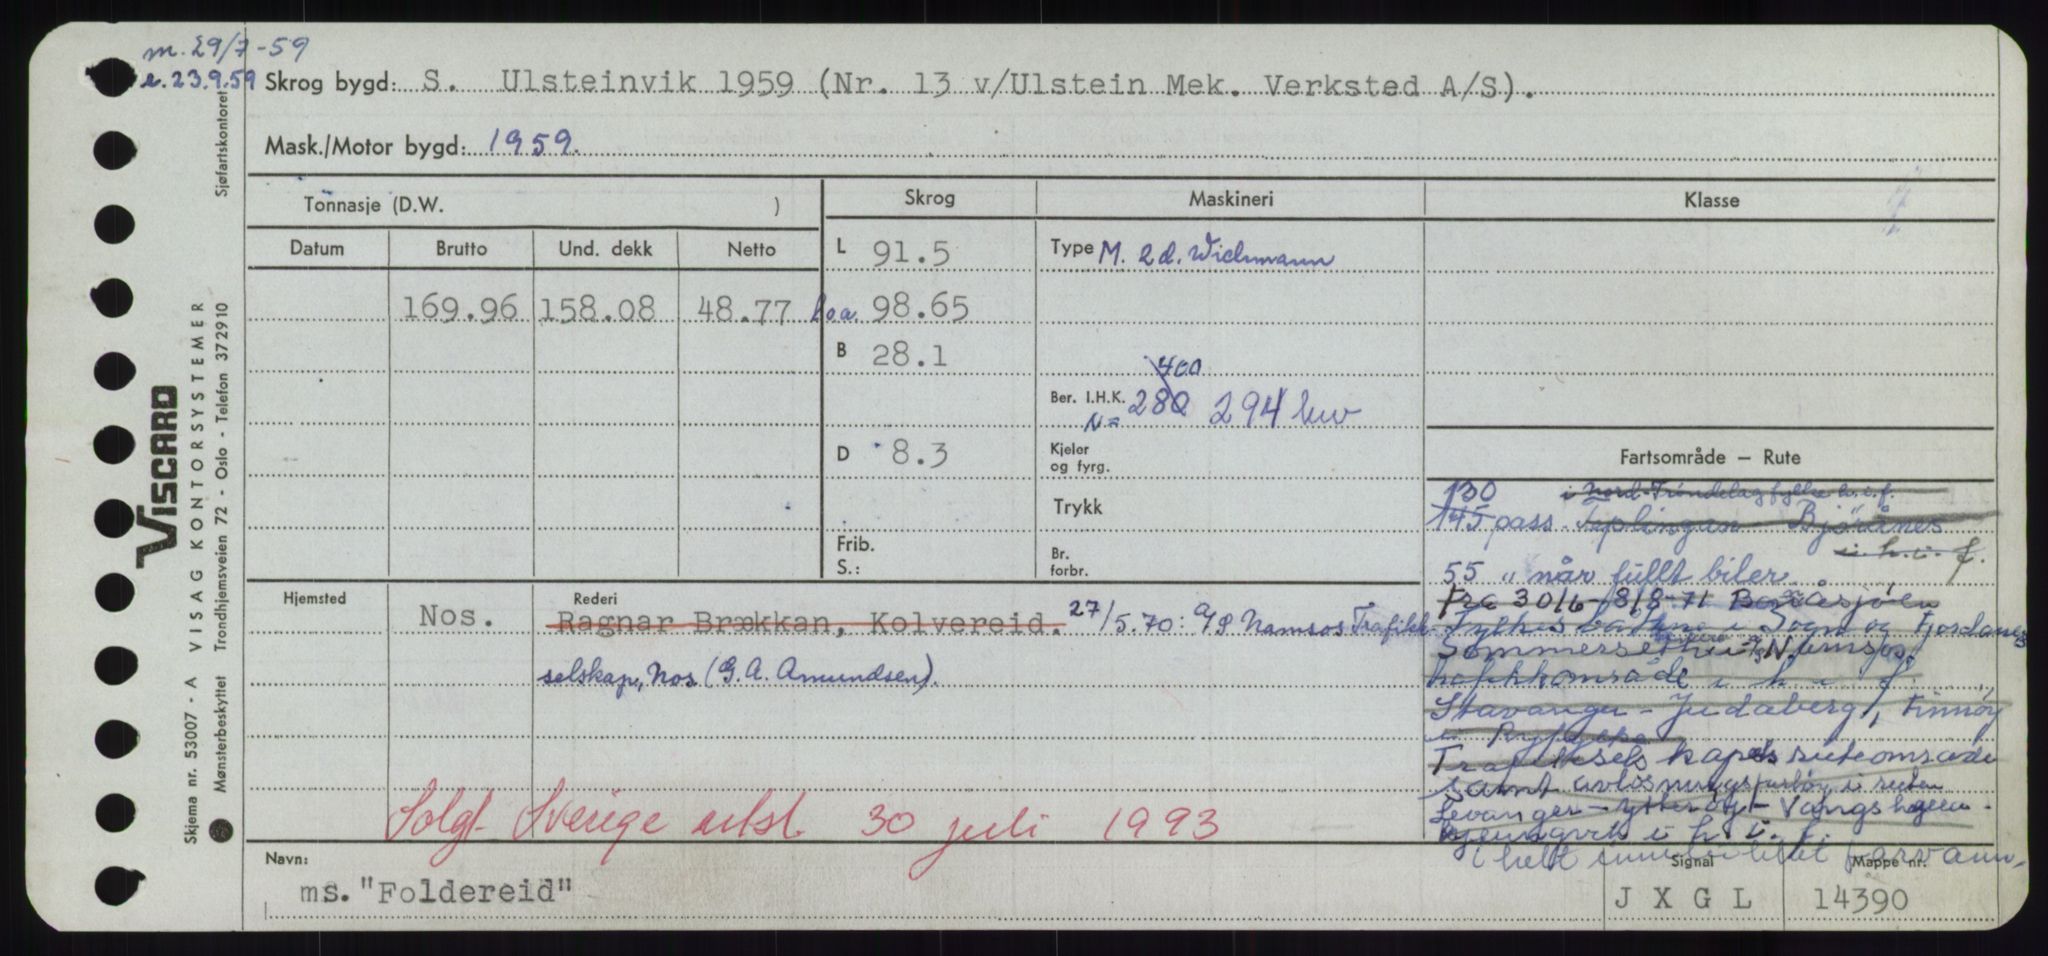 m. 29/7-59
e. 23.9.59
Skrog bygd: S. Ulsteinvik 1959 (Nr. 13 v/Ulstein Mek. Verksted A/S).
Mask./Motor bygd: 1959.
Tonnasje (D.W. )
Skrog
Maskineri
Klasse
Datum
Brutto
Und. dekk
Netto
L 91.5
Type M. 2 d. Wichmann
169.96
158.08
48.77
Loa. 98.65
B 28.1
400
Ber. I.H.K. 280 294 kw
N=
D 8.3
Kjeler
og fyrg.
Trykk
Frib.
S.:
Br.
forbr.
Fartsområde – Rute
130 i Nord-Trøndelag fylke h.i.f.
145 pass Teplingan - Bjørånes
i. h. i. f.
55 " når fullt biler.
Fra 30/6-8/8-71
Fylkesbåtane i Sogn og Fjordane
i Namsos
i h i f
Stavanger - Judaberg, Finnøy
i Ryfylke
Trafikkselskapets ruteomsåde
samt avløsningsfartøy i ruten
Levanger - Ytterøy - Vangshagen -
i h. i. f.
i helt farvann.
Hjemsted
Nos.
Rederi
Ragnar Brækkan, Kolvereid. 27/5.70: A/S Namsos Trafikk-
selskap, Nos (G. A. Amundsen).
Solgt Sverige utsl. 30 juli 1993
Navn:
ms. "Foldereid"
Signal
J X G L
Mappe nr.
14390
Sjøfartskontoret
VISCARD
Skjema nr. 53007 - A VISAG KONTORSYSTEMER
Mønsterbeskyttet Trondhjemsveien 72 - Oslo - Telefon 372910